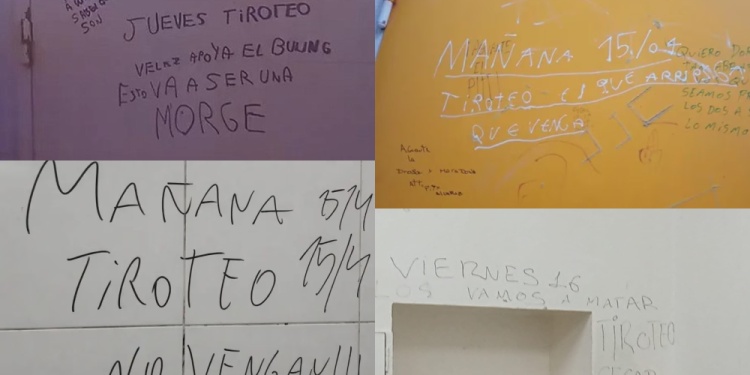 JUEVES TIROTEO
VELAZ APOYA EL BULLING
ESTO VA A SER UNA
MORGE
MAÑANA 15/04
TIROTEO EL QUE ARRIESGA
QUE VENGA
QUIERO
SEAMOS
LOS DOS A
LO MISMO
Aguante
la
MAÑANA 15/4
TIROTEO 15/4
NO VENGAN!!!
VIERNES 16
LOS VAMOS A MATAR
TIROTEO